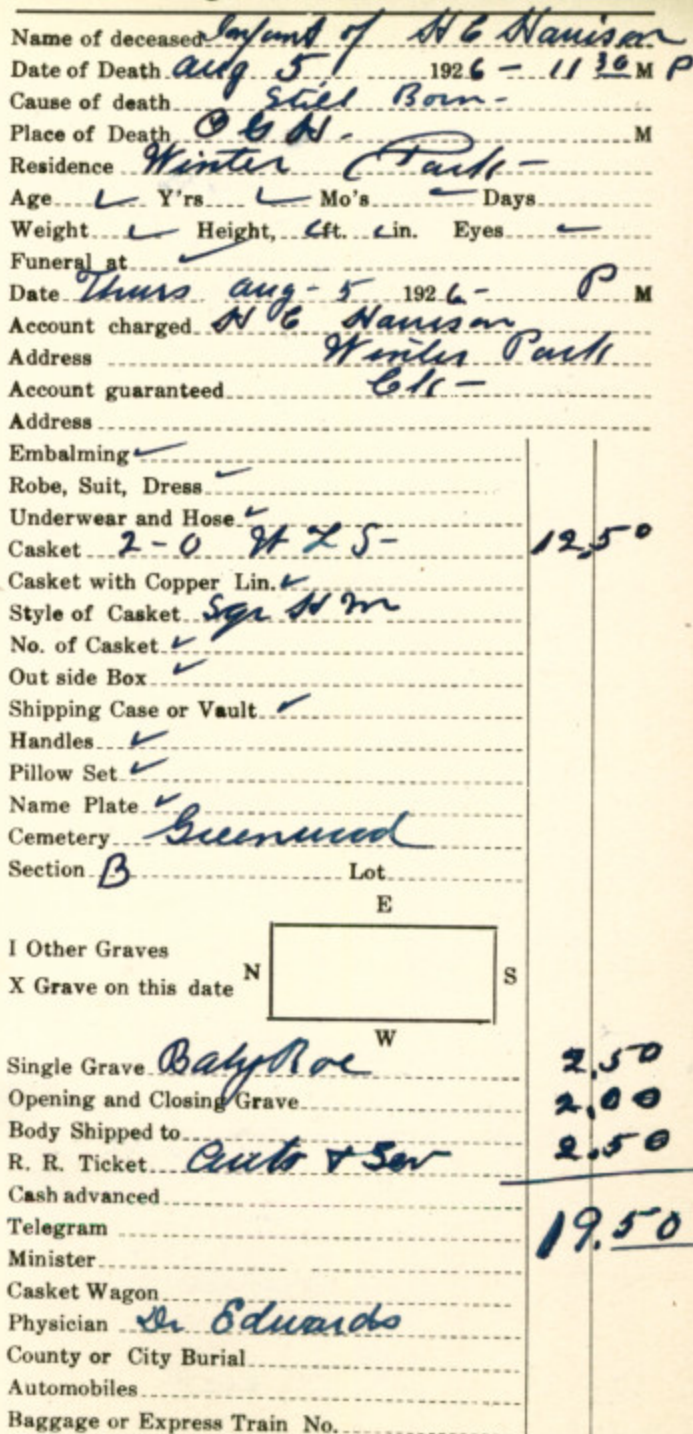 Name of deceased Infant of H C Harrison
Date of Death Aug 5, 1926 - 11 30 M P
Cause of death Still Born -
Place of Death O G H - M
Residence Winter Park -
Age Y'rs Mo's Days
Weight Height, ft. in. Eyes
Funeral at
Date Thurs Aug - 5 1926 - P M
Account charged H C Harrison
Address Winter Park
Account guaranteed
Address
Embalming
Robe, Suit, Dress
Underwear and Hose
Casket 2-0 12.50
Casket with Copper Lin.
Style of Casket Sqr
No. of Casket
Out side Box
Shipping Case or Vault
Handles
Pillow Set
Name Plate
Cemetery Greenwood
Section B Lot
E
I Other Graves
X Grave on this date N S
W
Single Grave Baby Roe 2.50
Opening and Closing Grave 2.00
Body Shipped to 2.50
R. R. Ticket Auto & Ser
Cash advanced
Telegram 19.50
Minister
Casket Wagon
Physician Dr Edwards
County or City Burial
Automobiles
Baggage or Express Train No.